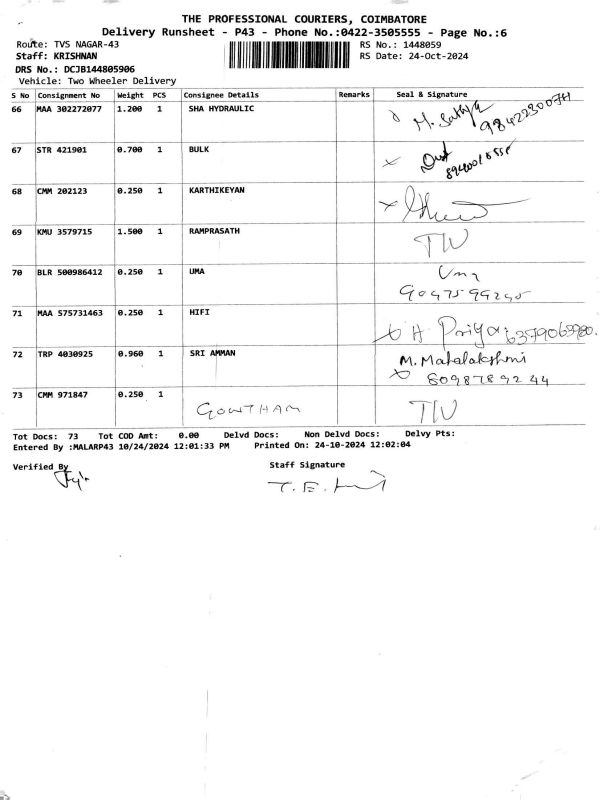 THE PROFESSIONAL COURIERS, COIMBATORE
Delivery Runsheet - P43 - Phone No.:0422-3505555 - Page No.:6
Route: TVS NAGAR-43 RS No.: 1448059
Staff: KRISHNAN RS Date: 24-Oct-2024
DRS No.: DCJB144805906
Vehicle: Two Wheeler Delivery
S No Consignment No Weight PCS Consignee Details Remarks Seal & Signature
66 MAA 302272077 1.200 1 SHA HYDRAULIC M. Sathya
67 STR 421901 0.700 1 BULK
68 CMM 202123 0.250 1 KARTHIKEYAN
69 KMU 3579715 1.500 1 RAMPRASATH
70 BLR 500986412 0.250 1 UMA Uma
71 MAA 575731463 0.250 1 HIFI H Priya
72 TRP 4030925 0.960 1 SRI AMMAN M. Mahalakshmi
8098789244
73 CMM 971847 0.250 1 GOWTHAM
Tot Docs: 73 Tot COD Amt: 0.00 Delvd Docs: Non Delvd Docs: Delvy Pts:
Entered By :MALARP43 10/24/2024 12:01:33 PM Printed On: 24-10-2024 12:02:04
Verified By Staff Signature